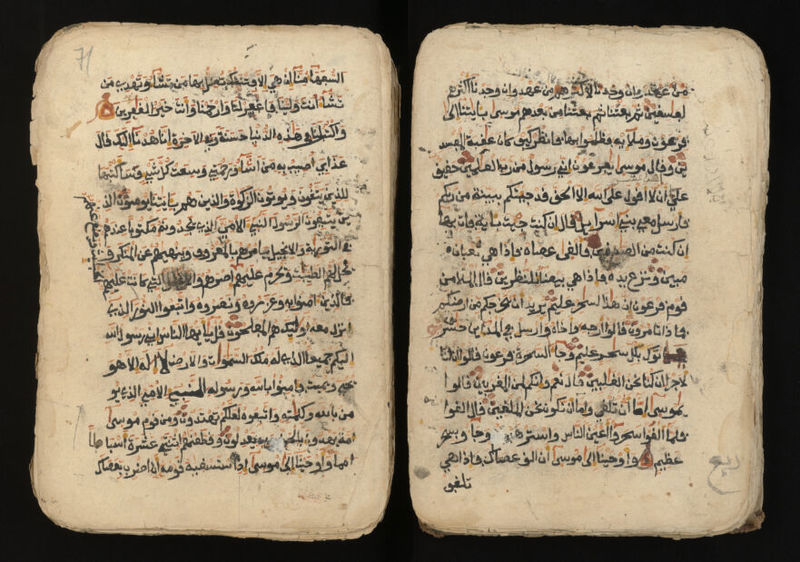 من عهد وان وجدنا لاكثرهم من عهد وان وجدنا اكثرهم
لفسقين ثم بعثنا من بعدهم موسى بايتنا الى
فرعون وملايه فظلموا بها فانظر كيف كان عقبة المفسد
ين وقال موسى يفرعون اني رسول من رب العلمين حقيق
على ان لا اقول على الله الا الحق قد جيتكم ببينة من ربكم
فارسل معي بني اسرايل قال ان كنت جيت باية فات بها
ان كنت من الصدقين فالقى عصاه فاذا هي ثعبان
مبين ونزع يده فاذا هي بيضا للنظرين قال الملا من
قوم فرعون ان هذا لسحر عليم يريد ان يخرجكم من ارضكم
فماذا تامرون قالوا ارجه واخاه وارسل في المداين حشر
ين ياتوك بكل سحر عليم وجا السحرة فرعون قالوا ان لنا
لاجرا ان كنا نحن الغلبين قال نعم وانكم لمن المقربين قالوا
يموسى اما ان تلقي واما ان نكون نحن الملقين قال القوا
فلما القوا سحروا اعين الناس واسترهبوهم وجاو بسحر
عظيم واوحينا الى موسى ان الق عصاك فاذا هي
تلقف
ربع
71
السفها منا ان هي الا فتنتك تضل بها من تشا وتهدي من
تشا انت ولينا فاغفر لنا وارحمنا وانت خير الغفرين
واكتب لنا في هذه الدنيا حسنة وفي الاخرة انا هدنا اليك قال
عذابي اصيب به من اشا ورحمتي وسعت كل شي فساكتبها
للذين يتقون ويوتون الزكوة والذين هم بايتنا يومنون الذ
ين يتبعون الرسول النبي الامي الذي يجدونه مكتوبا عندهم
في التورية والانجيل يامرهم بالمعروف وينهيهم عن المنكر و
يحل لهم الطيبت ويحرم عليهم اصرهم والاغلل التي كانت عليهم
الخبيث ويضع عنهم
فالذين امنوا به وعزروه ونصروه واتبعوا النور الذي
انزل معه اوليك هم المفلحون قل يايها الناس اني رسول الله
اليكم جميعا الذي له ملك السموات والارض لا اله الا هو
يحيي ويميت فامنوا بالله ورسوله النبي الامي الذي يو
من بالله وكلمته واتبعوه لعلكم تهتدون ومن قوم موسى
امة يهدون بالحق وبه يعدلون وقطعنهم اثنتي عشرة اسباطا
امما واوحينا الى موسى اذ استسقيه قومه ان اضرب بعصاك